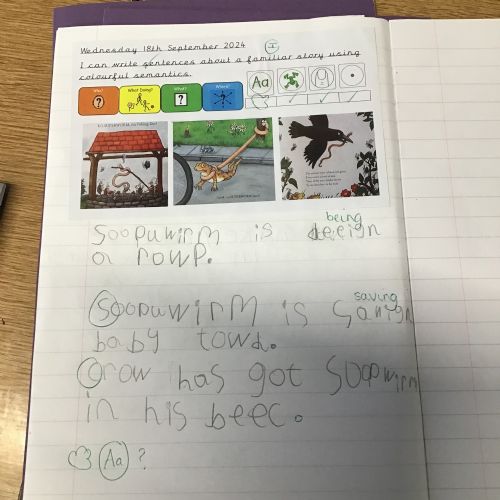 Wednesday 18th September 2024
I
I can write sentences about a familiar story using
colourful semantics.
Who? What Doing? What? Where?
Aa
being
Soopuwirm is deeign
a rowp.
saving
Soopuwirm is Savign
baby towd.
Crow has got Soopwirm
in his beec.
Aa ?